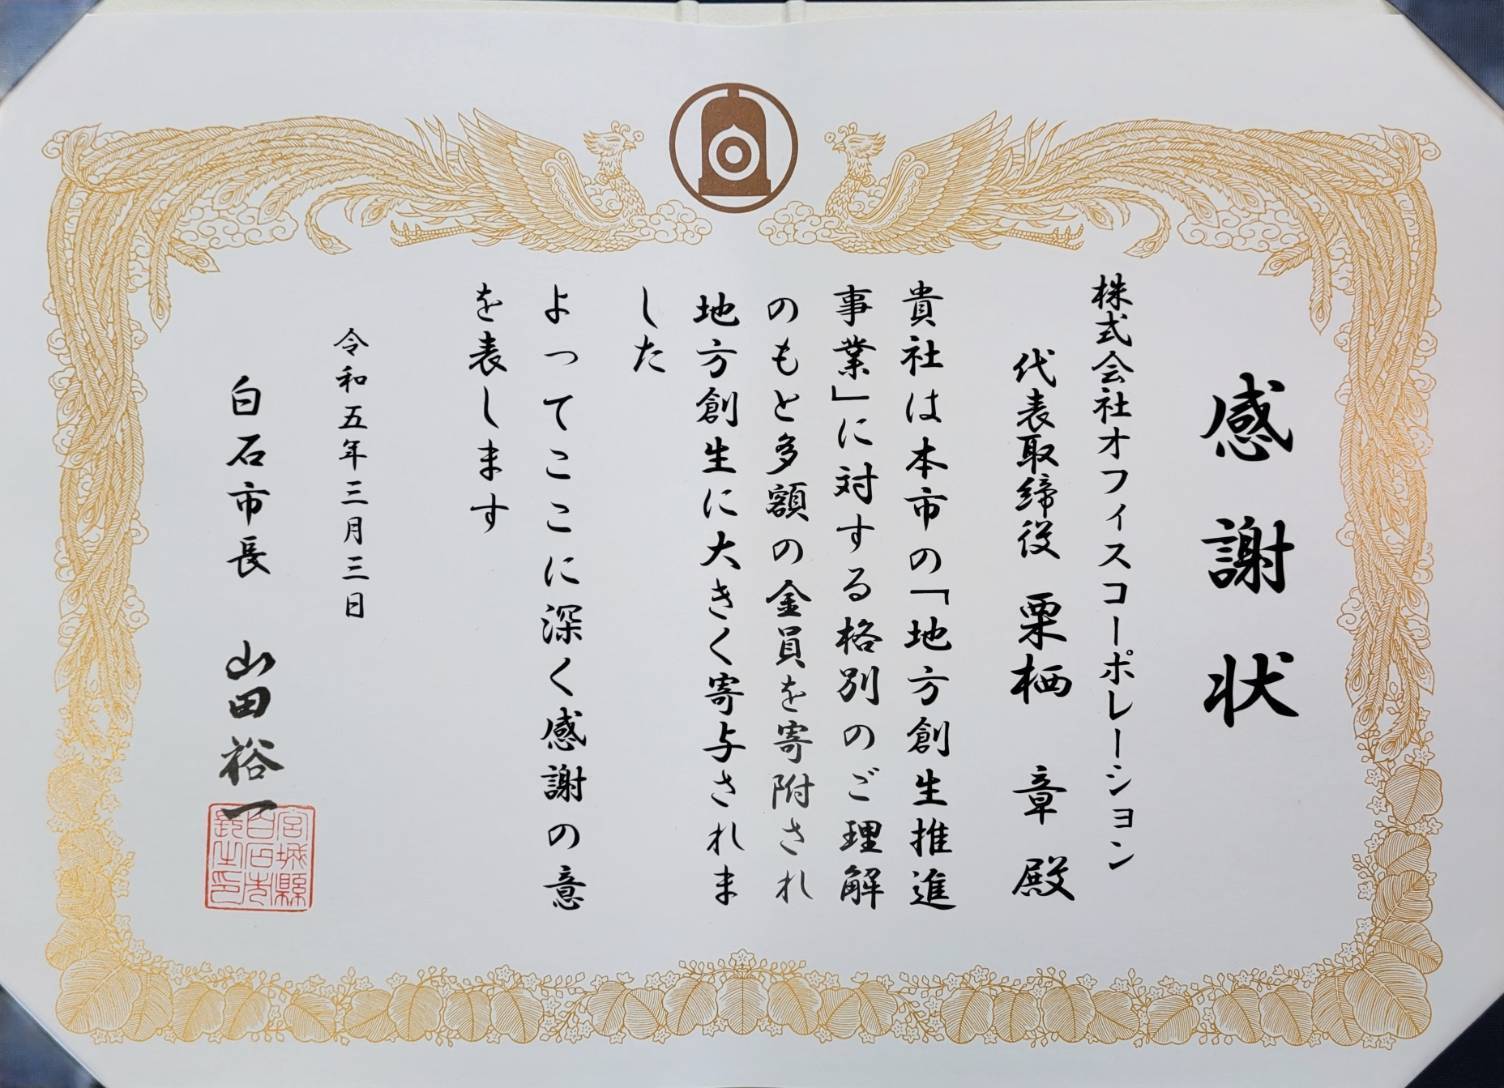 感謝状
株式会社オフィスコーポレーション
代表取締役 栗栖 章 殿
貴社は本市の「地方創生推進
事業」に対する格別のご理解
のもと多額の金員を寄附され
地方創生に大きく寄与されま
した
よってここに深く感謝の意
を表します
令和五年三月三日
白石市長 山田裕一
宮城縣
白石市